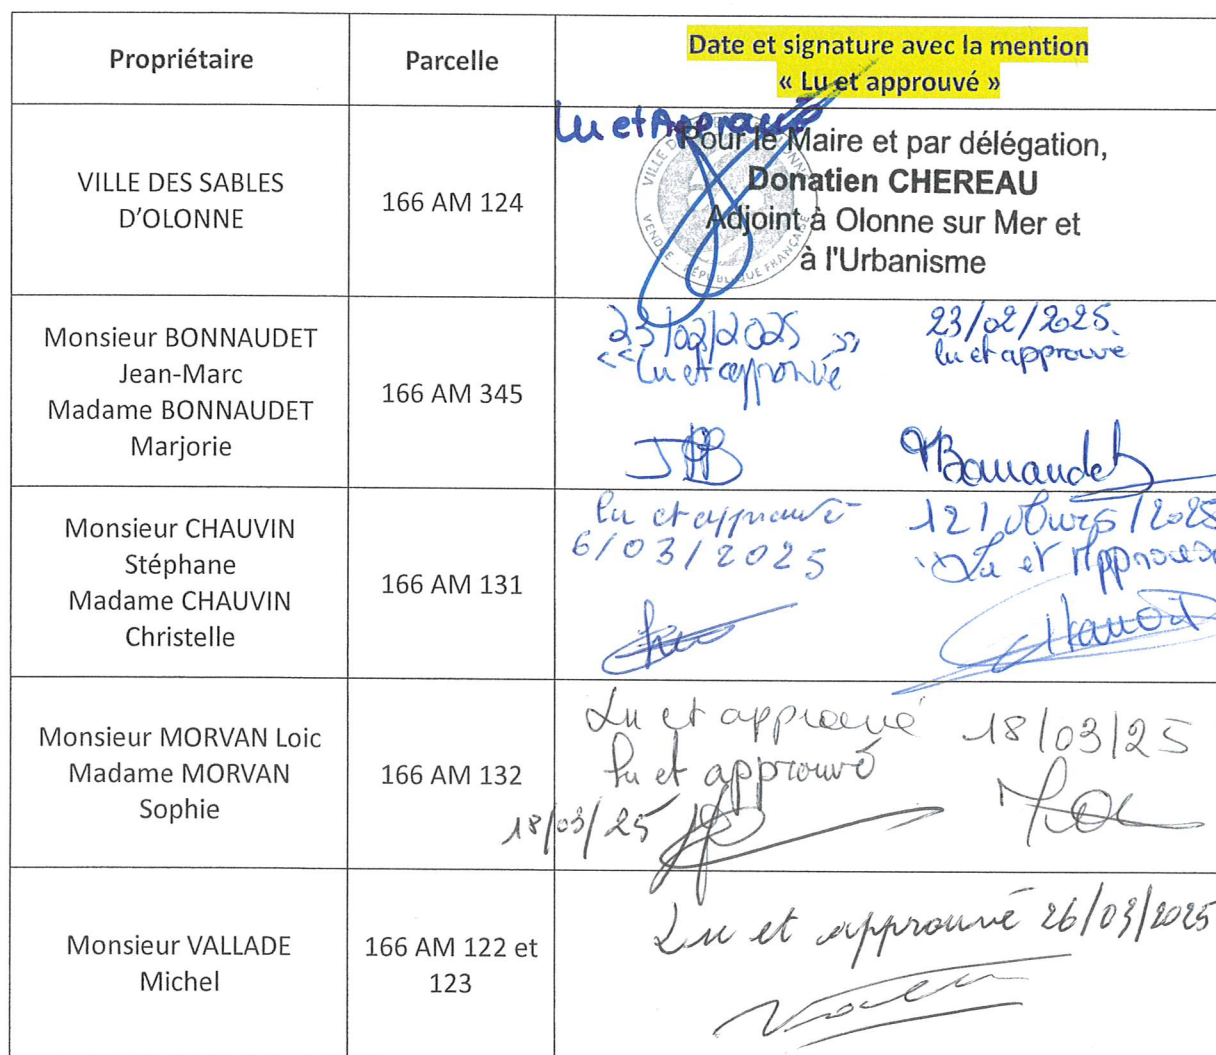 Propriétaire
Parcelle
Date et signature avec la mention
« Lu et approuvé »
VILLE DES SABLES
D'OLONNE
166 AM 124
Lu et Approuvé
Pour le Maire et par délégation,
Donatien CHEREAU
Adjoint à Olonne sur Mer et
à l'Urbanisme
VENDÉE - RÉPUBLIQUE FRANÇAISE
Monsieur BONNAUDET
Jean-Marc
Madame BONNAUDET
Marjorie
166 AM 345
23/02/2025
<<Lu et approuvé>>
23/02/2025.
lu et approuvé
Monsieur CHAUVIN
Stéphane
Madame CHAUVIN
Christelle
166 AM 131
lu et approuvé
6/03/2025
12/Mars/2025
Lu et Approuvé
Monsieur MORVAN Loic
Madame MORVAN
Sophie
166 AM 132
Lu et approuvé 18/03/25
lu et approuvé
18/03/25
Monsieur VALLADE
Michel
166 AM 122 et
123
Lu et approuvé 26/03/2025